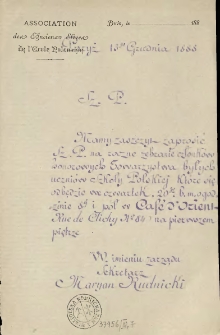 ASSOCIATION
des Anciens Elèves
de l'Ecole Polonaise
Paris, le 188
Paryż 13go Grudnia 1888
Sz. P.
Mamy zaszczyt zaprosić
Sz. P. na razne zebranie członków
honorowych Towarzystwa byłych
uczniów Szkoły Polskiej, które się
odbędzie we czwartek, 20go b. m. o godzinie
8ej i pół w Café d'Orient
Rue de Clichy No 84 na pierwszem
piętrze
W imieniu zarządu
Sekretarz
Maryan Rudnicki